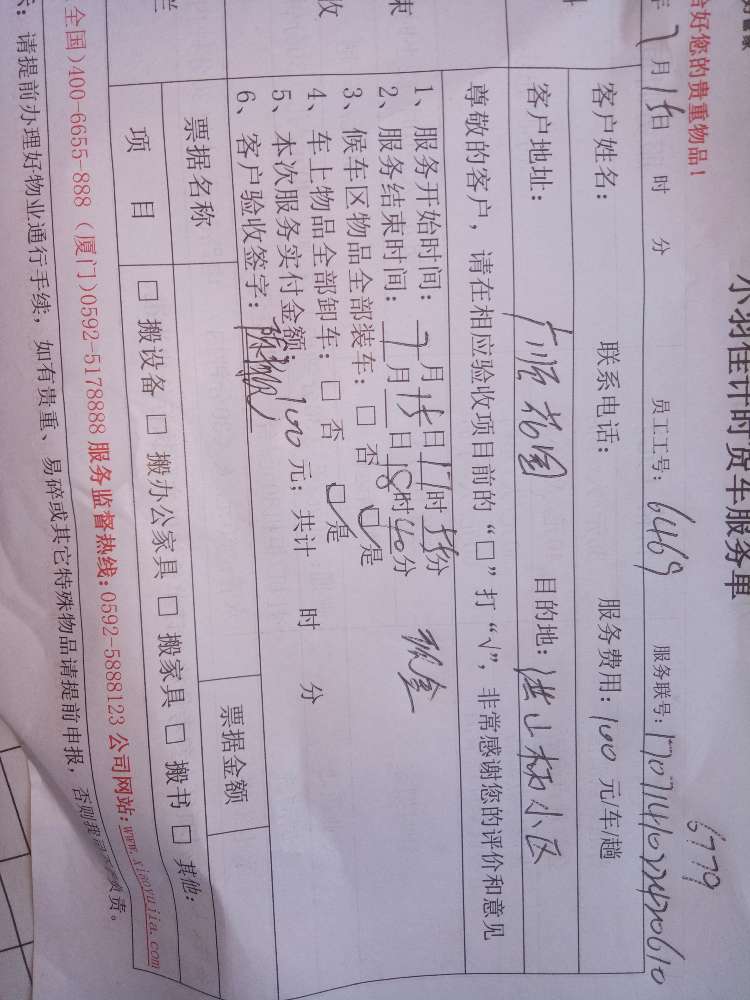 小羽佳计时货车服务单
6779
给好您的贵重物品!
7月15日 时 分 员工工号: 6469 服务联号: 
客户姓名: 联系电话: 服务费用: 100 元/车/趟
客户地址: 广顺花园 目的地: 洪山柄小区
尊敬的客户, 请在相应验收项目前的“□”打“√”, 非常感谢您的评价和意见
1、服务开始时间: 7月15日17时 分
2、服务结束时间: 月 日18时40分 现金
3、候车区物品全部装车: □ 否 □ 是
4、车上物品全部卸车: □ 否 □ 是
5、本次服务实付金额: 100 元; 共计 时 分
6、客户验收签字:
票据名称 票据金额
项 目 □ 搬设备 □ 搬办公家具 □ 搬家具 □ 搬书 □ 其他:
全国)400-6655-888 (厦门)0592-5178888 服务监督热线:0592-5888123 公司网站:www.xiaoyujia.com
: 请提前办理好物业通行手续, 如有贵重、易碎或其它特殊物品请提前申报, 否则 负责。